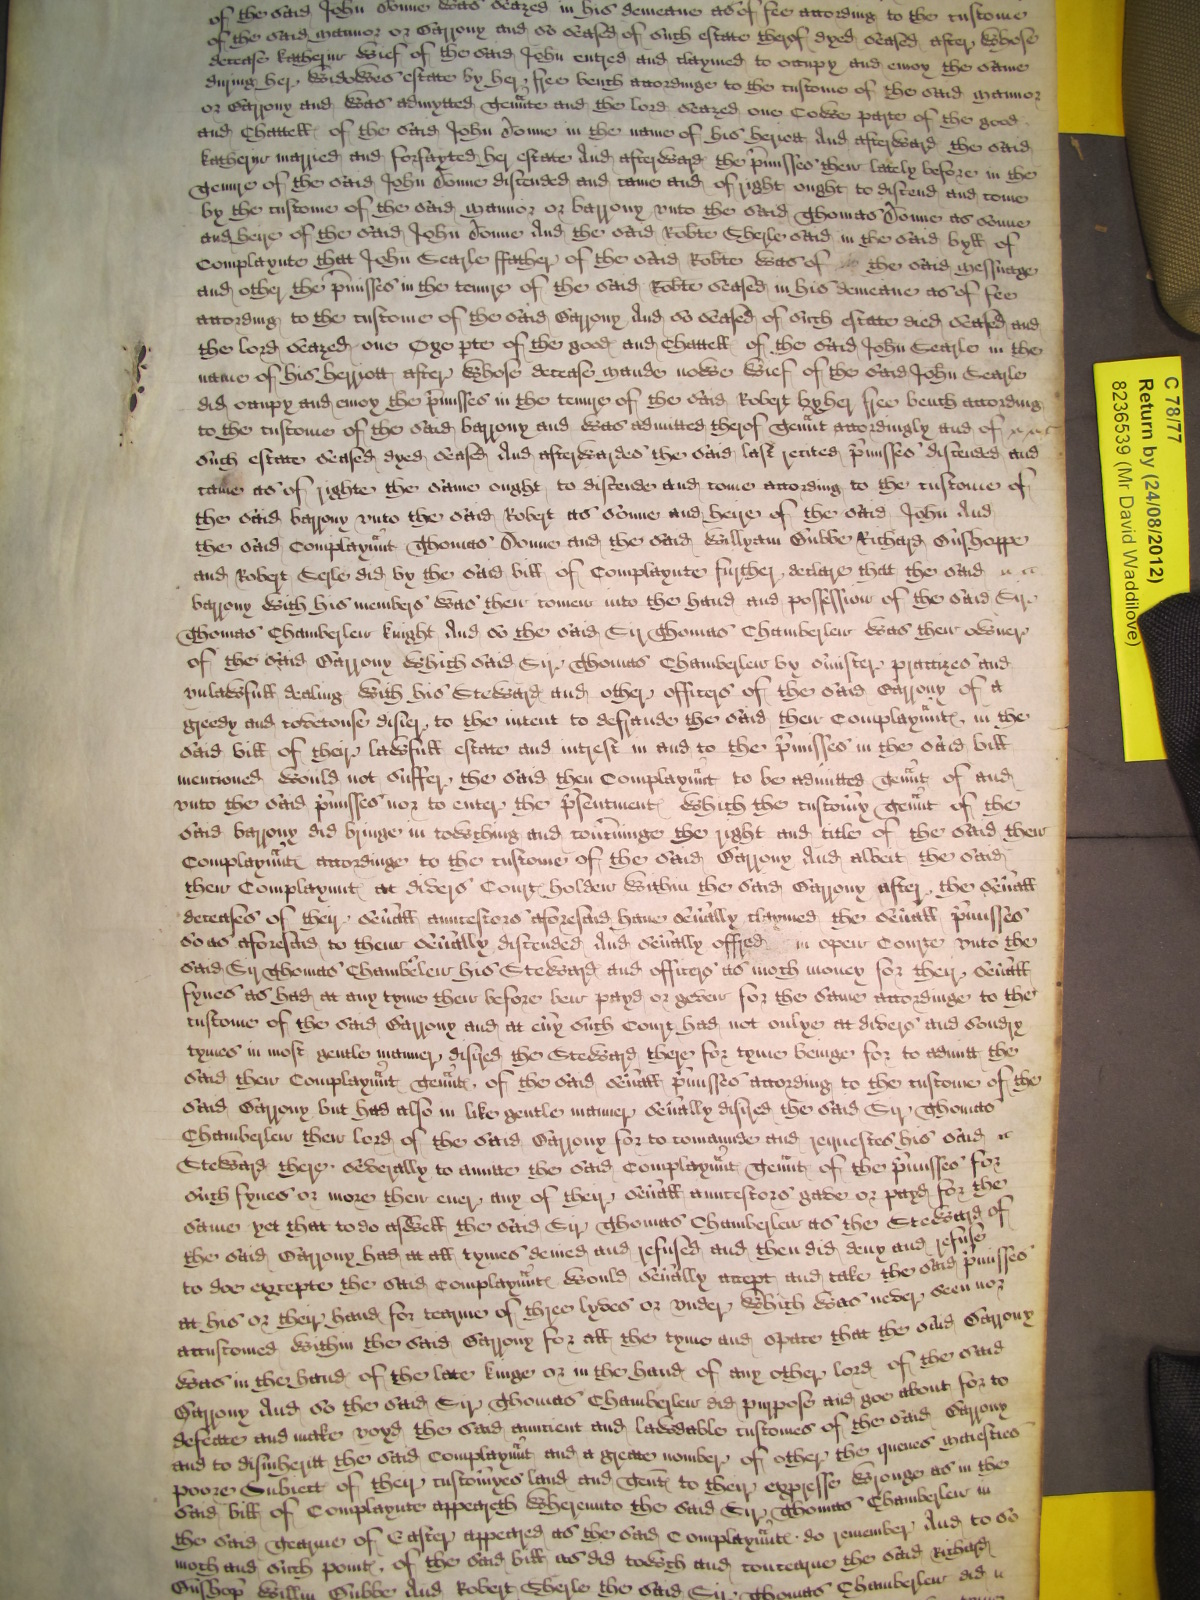 of the said John Donne was seazed in his demeane as of fee according to the custome
of the said mannor or Barrony and so seased of such estate therof dyed seased after whose
decease Katherine Wief of the said John entred and claymed to occupy and enioy the same
during her widowes estate by her free bench accordinge to the custome of the said mannor
or Barrony and was admytted tennte and the lord seazed one Cowe parte of the good
and Chattell of the said John Donne in the name of his heriott And afterward the said
Katherin married and forfayted her estate And afterward the p'misses then lately before in the
tenure of the said John Donne discended and came and of right ought to discend and come
by the custome of the said mannor or barrony vnto the said Thomas Donne as sonne
and heire of the said John Donne And the said Robte Sherle said in the said byll of
Complaynte that John Searle ffather of the said Robte was of the said messuage
and other the p'misses in the tenure of the said Robte seased in his demeane as of fee
according to the custome of the said Barrony And so seased of such estate died seased and
the lord seazed one Oxe pte of the good and Chattell of the said John Searle in the
name of his herriott after whose decease Maude nowe Wief of the said John Searle
did occupy and enioy the p'misses in the tenure of the said Robert by her free bench according
to the custome of the said barrony and was admitted therof tennt accordingly and of
such estate seased dyed seased And afterwardes the said last recited p'misses discended and
came as of righte the same ought to discende and come according to the custome of
the said barrony vnto the said Robert as sonne and heire of the said John And
the said Complaynnt Thomas Donne and the said Willyam Gubbe Richard Bushoppe
and Robert Serle did by the said bill of Complaynte further declare that the said
barrony with his members was then comen into the hand and possession of the said Sir
Thomas Chamberlen knight And so the said Sir Thomas Chamberlen was then owner
of the said Barrony which said Sir Thomas Chamberlen by sinister practizes and
vnlawfull dealing with his Steward and other officers of the said Barrony of a
greedy and covetouse disier to the intent to defraude the said then Complaynnt in the
said bill of their lawfull estate and intrest in and to the p'misses in the said bill
mentioned would not suffer the said then Complaynnt to be admitted tennt of and
vnto the said p'misses nor to enter the p'sentment which the custom'y tennt of the
said barrony did bringe in towching and conc'ninge the right and title of the said then
Complaynnt accordinge to the custome of the said Barrony And albeit the said
then Complaynnt at divers Court holden within the said Barrony after the seu'all
deceases of their seu'all auncestors aforesaid haue seu'ally claymed the seu'all p'misses
so as aforesaid to them seu'ally discended And seu'ally offred in open Courte vnto the
said Sir Thomas Chamb'len his Steward and officers as moch money for their seu'all
fynes as had at any tyme then before ben payd or geven for the same accordinge to the
custome of the said Barrony and at eu'y such Court had not onlye at divers and sondry
tymes in most gentle manner disired the Steward there for tyme beinge for to admitt the
said then Complaynnt tennt of the said seu'all p'misses according to the custome of the
said Barrony but had also in like gentle manner seu'ally disired the said Sir Thomas
Chamberlen then lord of the said Barrony for to comaunde and requestes his said
Steward there severally to admitte the said Complaynnt tennt of the p'misses for
such fynes or more then euer any of their seu'all auncestors gave or payd for the
same yet that to do aswell the said Sir Thomas Chamberlen as the Steward of
the said Barrony had at all tymes denied and refused and then did deny and refuse
to doe excepte the said Complaynnt would seu'ally accept and take the said p'misses
at his or their hand for tearme of three lyves or vnder which was never seen nor
accustomed within the said Barrony for all the tyme and space that the said Barrony
was in the hand of the late kinge or in the hand of any other lord of the said
Barrony And so the said Sir Thomas Chamberlen did purpose and goe about for to
defeate and make voyd the said auncient and lawdable customes of the said Barrony
and to disinheritt the said Complaynnt and a greate nomber of other the quenes maiesties
poore Subiect of their custom'yes land and tent to their expresse wronge as in the
said bill of Complaynte appeareth Wherevnto the said Sir Thomas Chamberlen in
the said Tearme of Easter appeared as the said Complaynnt do remember And to so
moch and such point of the said bill as did towch and concearne the said Richard
Bushop Willm Gubbe And Robert Sherle the said Sir Thomas Chamberlen did
C 78/77
Return by (24/08/2012)
8236539 (Mr David Waddilove)